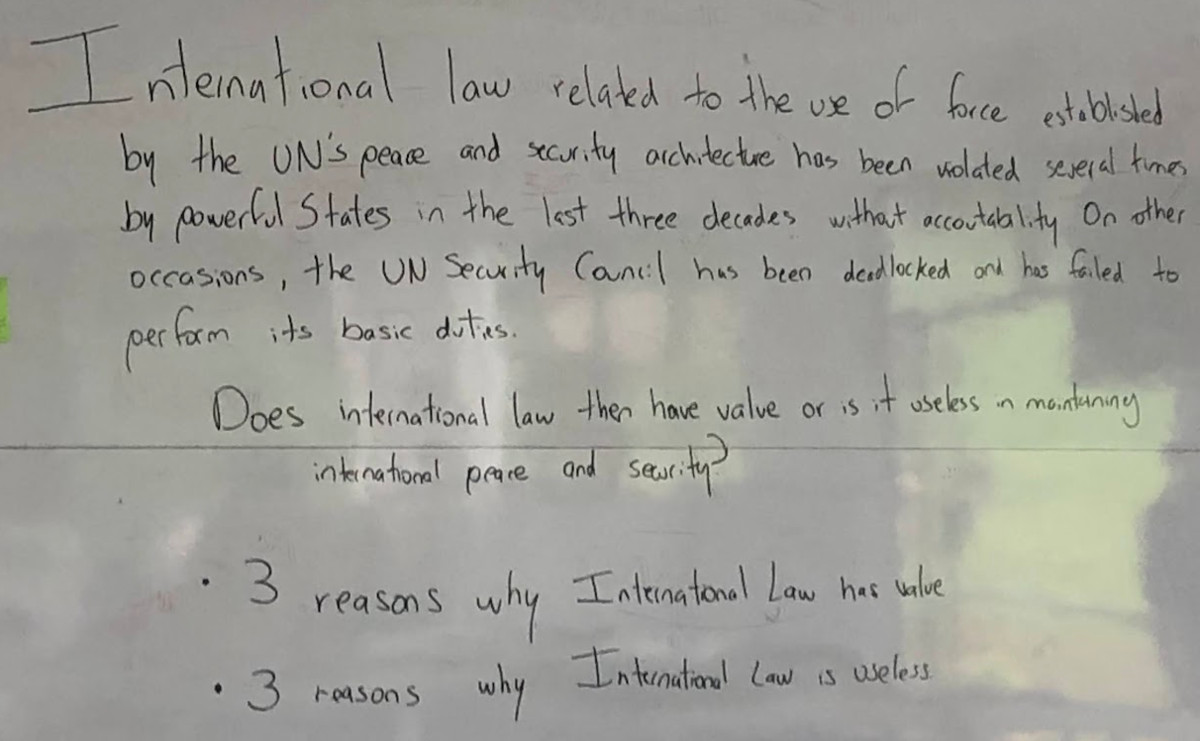 International law related to the use of force established
by the UN's peace and security architecture has been violated several times
by powerful States in the last three decades without accoutability On other
occasions, the UN Security Council has been deadlocked and has failed to
perform its basic duties.
Does international law then have value or is it useless in maintaining
international peace and security?
• 3 reasons why International Law has value
• 3 reasons why International Law is useless.